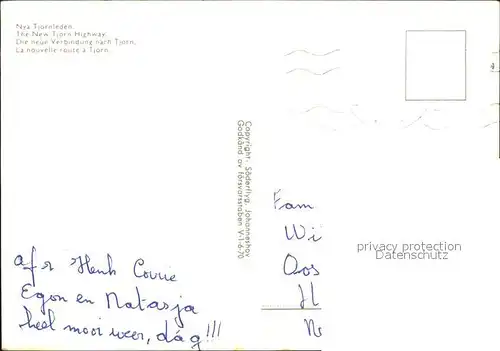 Nya Tjörnleden.
The New Tjörn Highway.
Die neue Verbindung nach Tjörn.
La nouvelle route à Tjörn.
Copyright: Söderflyg, Johanneshov
Godkänd av försvarsstaben V-1-6-70
Fam
Wi
Oos
H
privacy protection
Datenschutz
afz Henk Corrie
Egon en Natasja
heel mooi weer, dág!!!